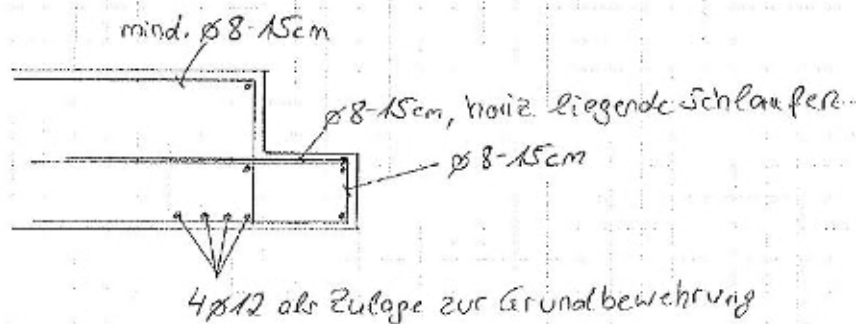 mind. ø8-15cm
ø8-15cm, horiz liegende Schlaufen
ø8-15cm
4ø12 als Zulage zur Grundbewehrung